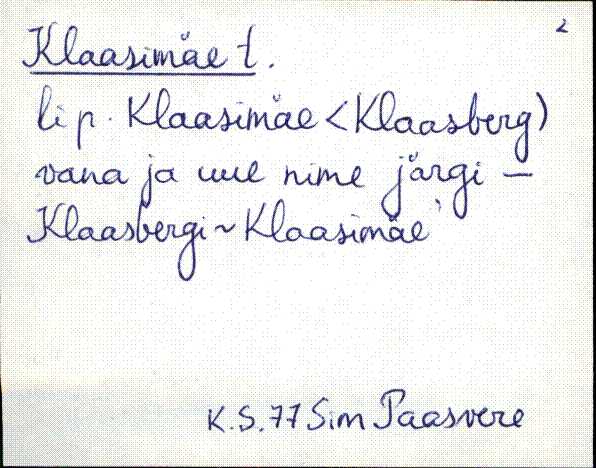 2
Klaasimäe t.
lip. Klaasimäe < Klaasberg)
vana ja uue nime järgi –
Klaasbergi ~ Klaasimäe
K.S. 77 Sim Paasvere